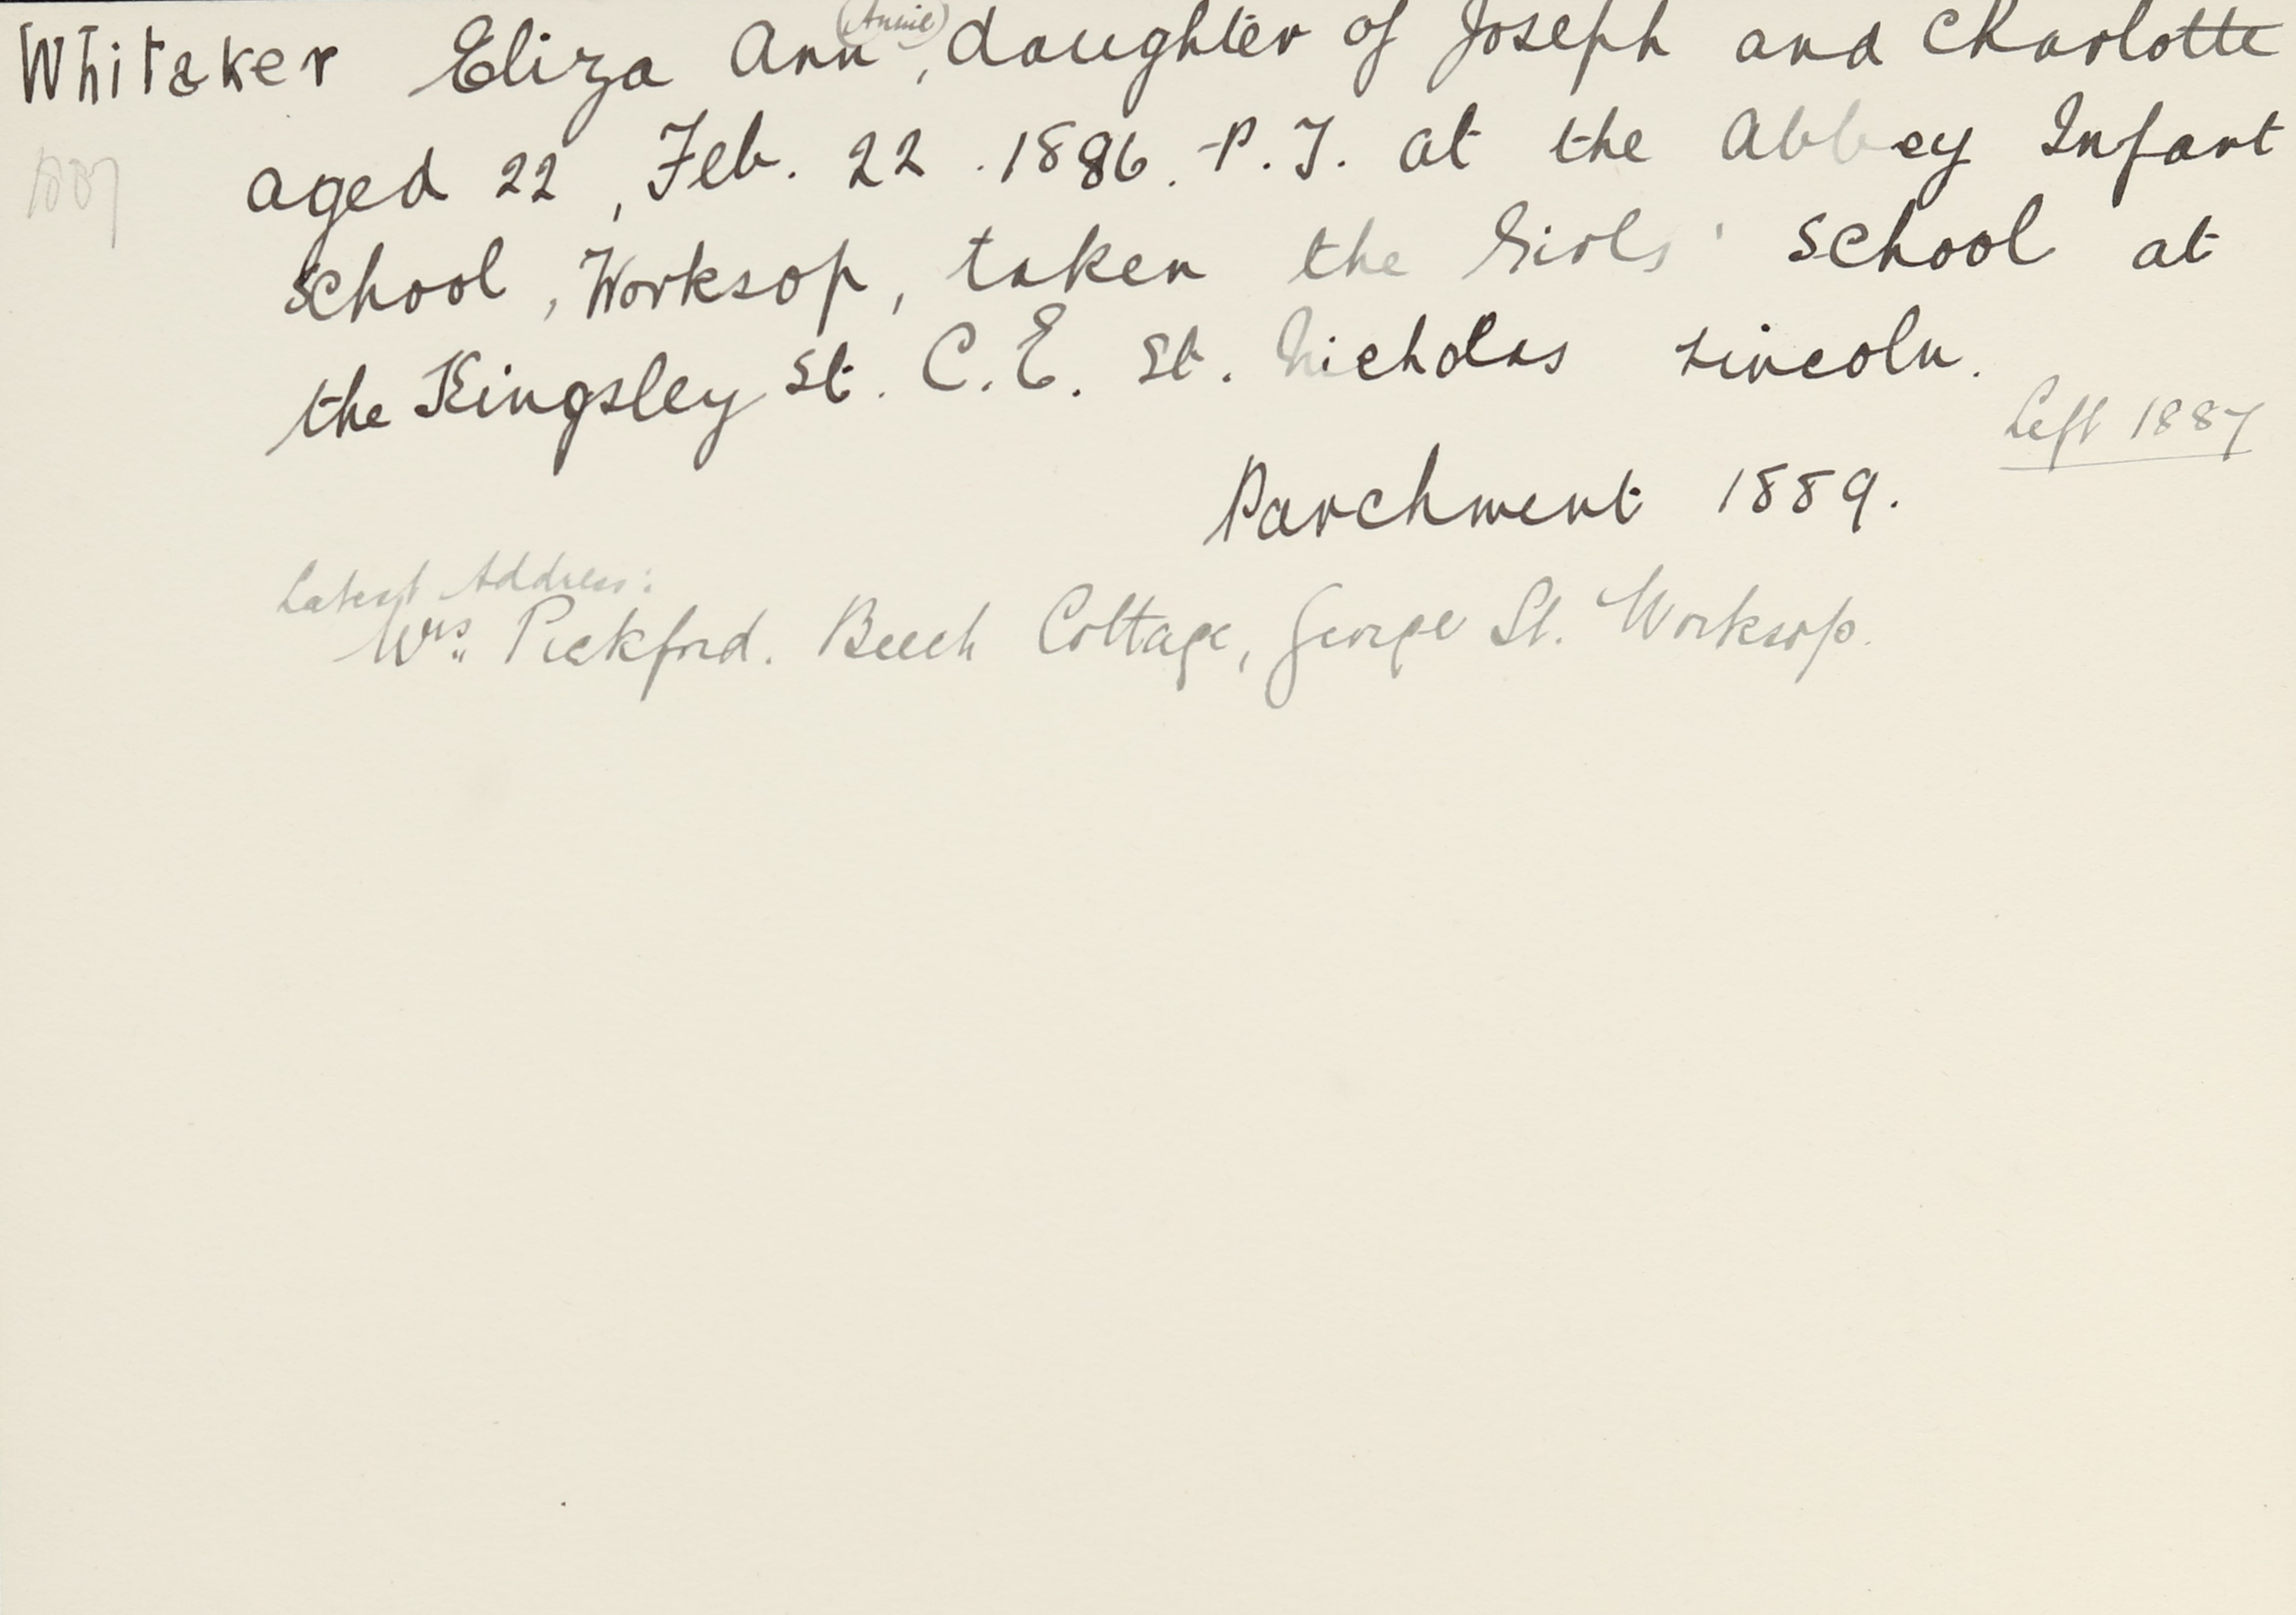 Whitaker Eliza Ann (Annie), daughter of Joseph and Charlotte
1887 aged 22, Feb. 22. 1886. P.T. at the Abbey Infant
School, Worksop, taken the Girls' School at
the Kingsley St. C.E. St. Nicholas Lincoln.
Left 1887
Parchment 1889.
Latest Address:
Mrs. Pickford. Beech Cottage, George St. Worksop.